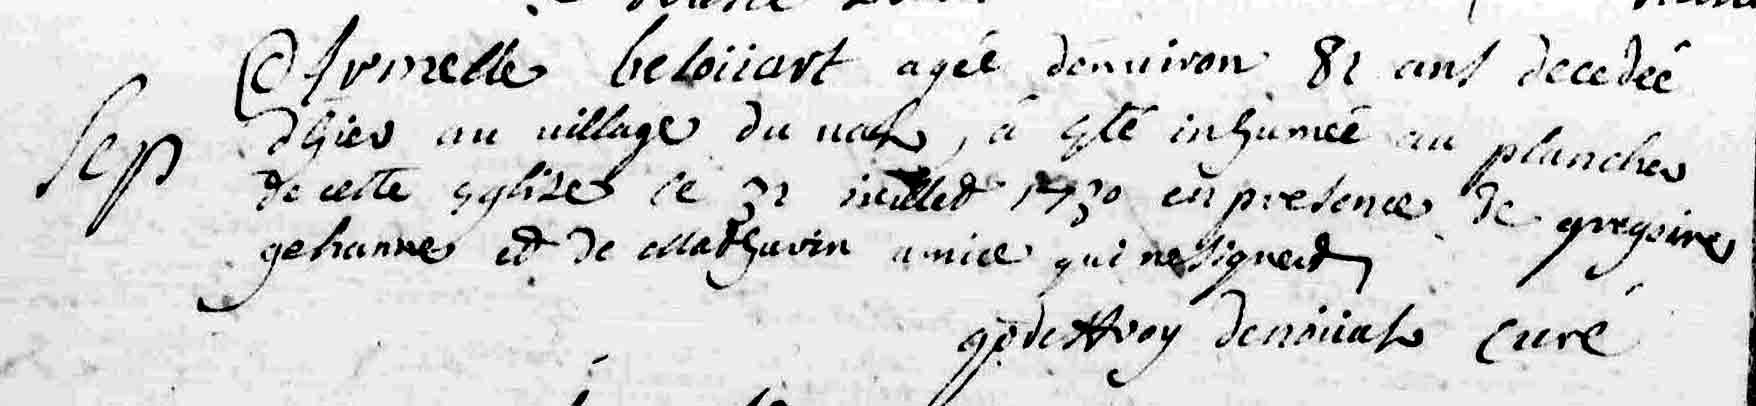 Armelle beloüart agéé denuiron 82 ans decedéé
Sep dhier au village du , á esté inhuméé au plancher
de cette esglise ce 31 iuillet 1730 en presence de gregoire
gehanne et de Mathurin amice qui ne signent
godeffroy denoüal curé